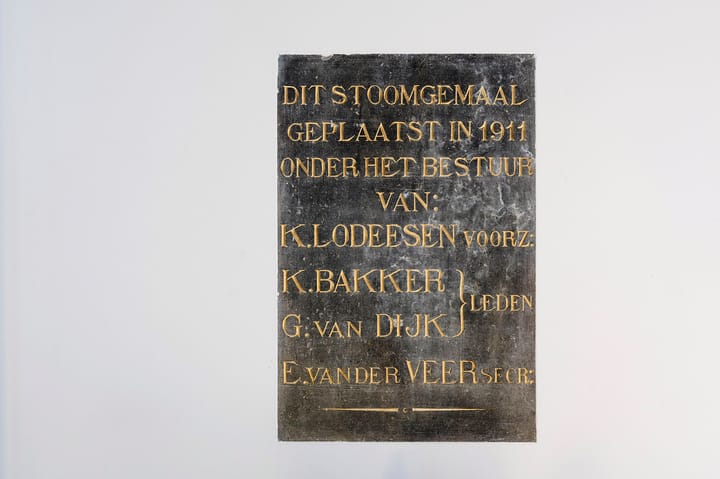 DIT STOOMGEMAAL
GEPLAATST IN 1911
ONDER HET BESTUUR
VAN:
K. LODEESEN VOORZ:
K. BAKKER
G: VAN DIJK } LEDEN
E. VAN DER VEER SECR: